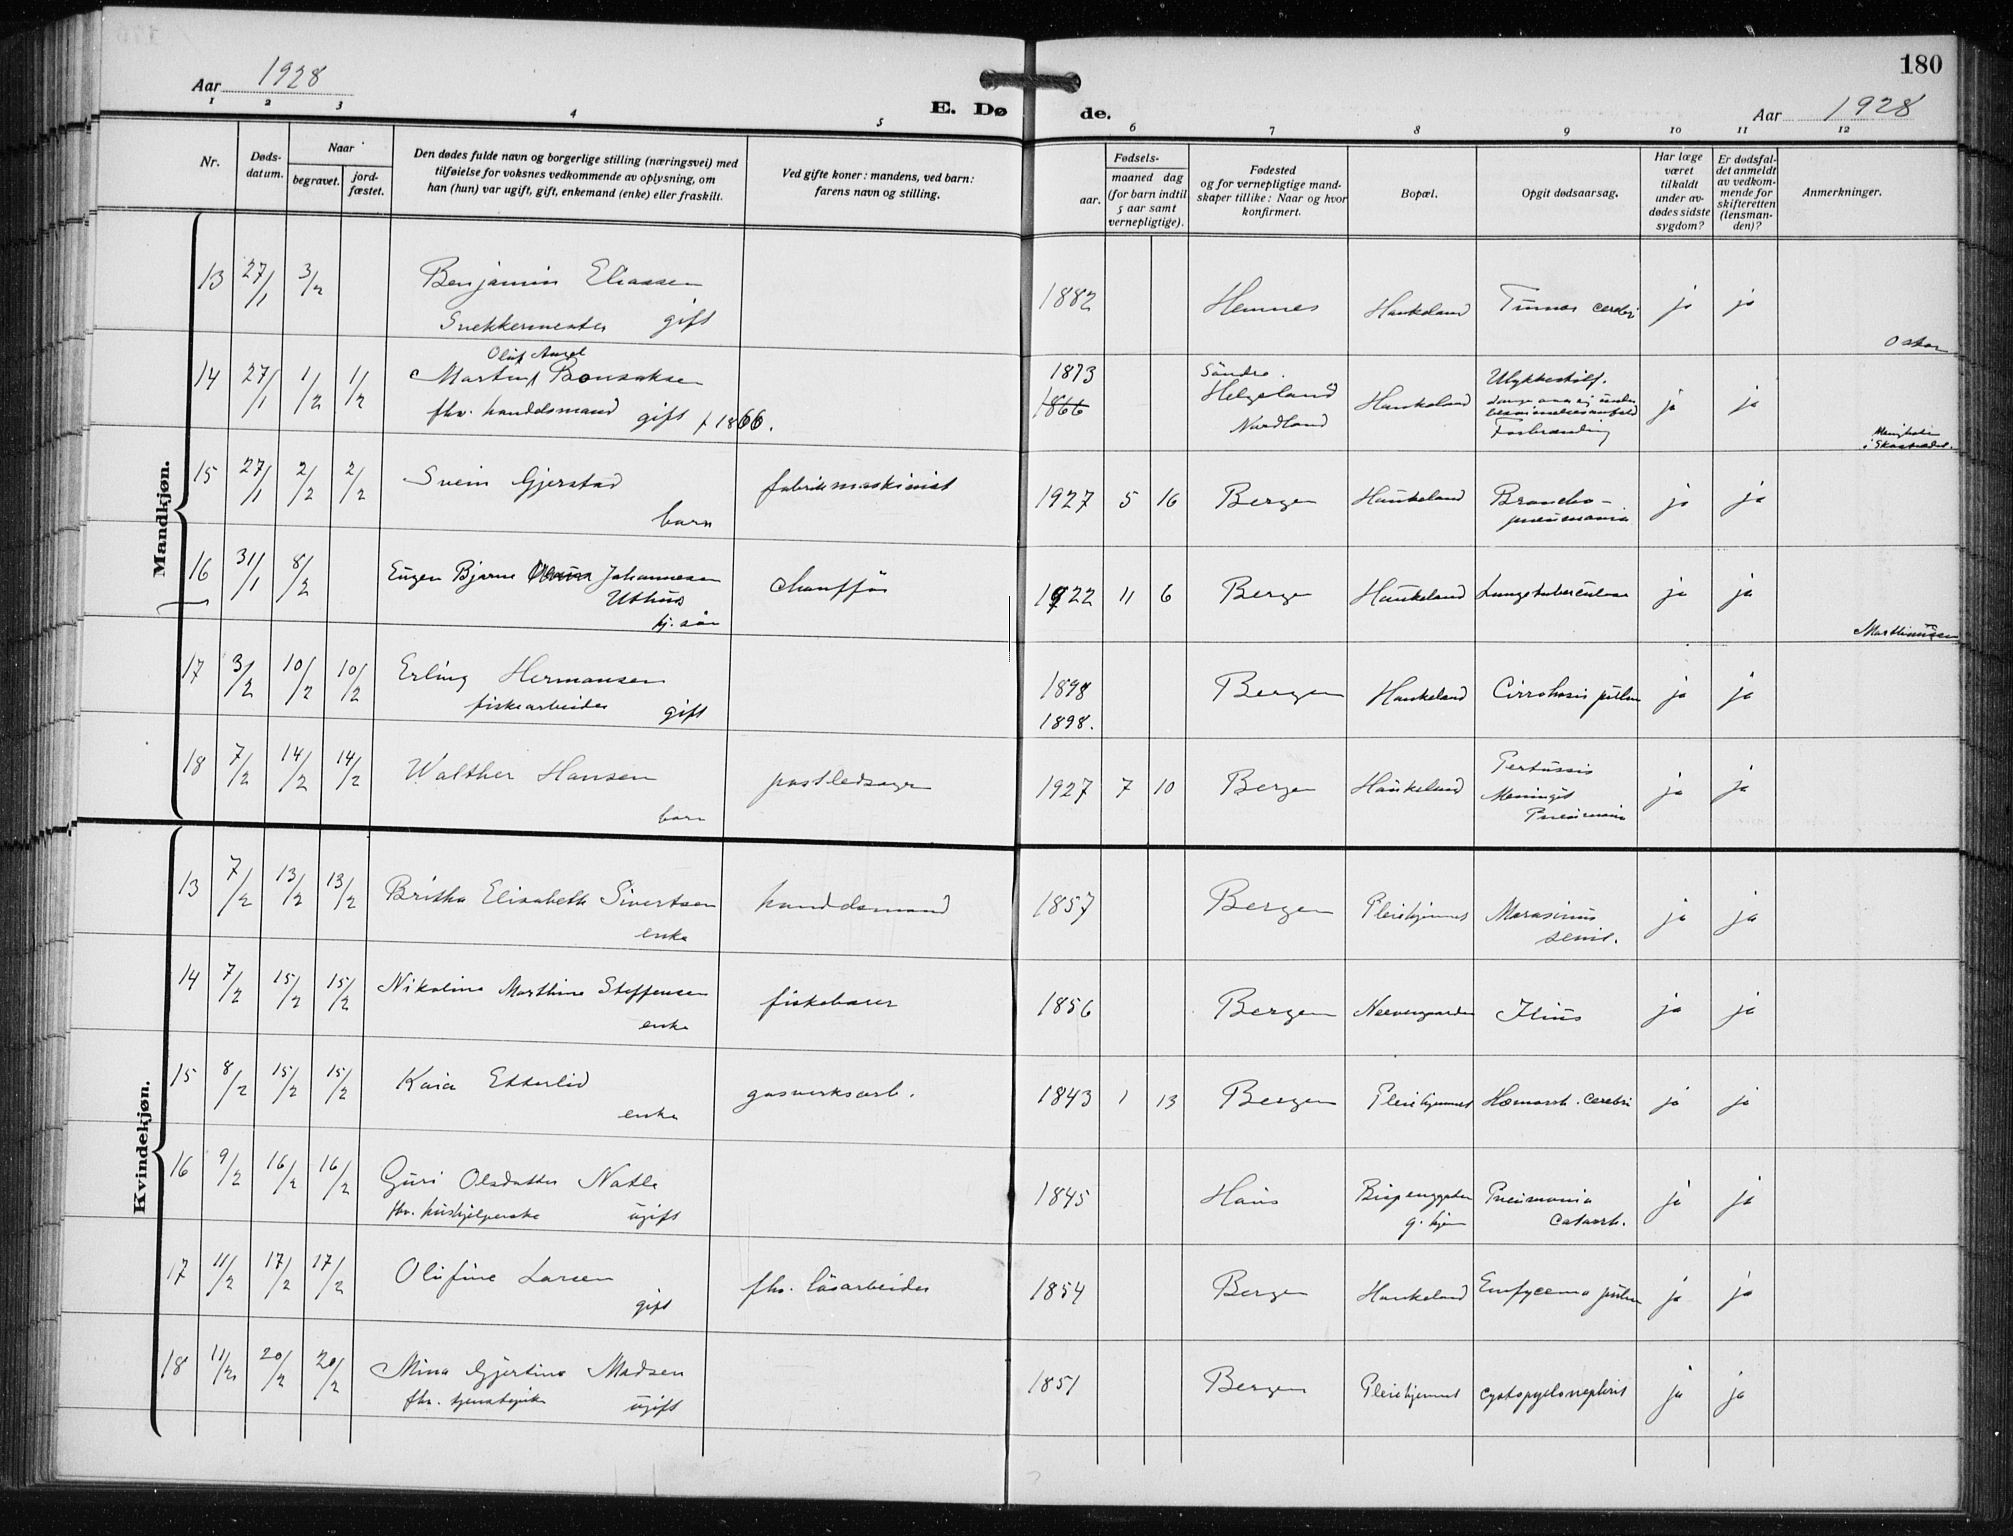 180
Aar 1928
E. Døde.
Aar 1928
1 2 3 4 5 6 7 8 9 10 11 12
Nr.
Døds-
datum.
Naar
begravet.
jord-
fæstet.
Den dødes fulde navn og borgerlige stilling (næringsvei) med
tilføielse for voksnes vedkommende av oplysning, om
han (hun) var ugift, gift, enkemand (enke) eller fraskilt.
Ved gifte koner: mandens, ved barn:
farens navn og stilling.
Fødsels-
aar.
maaned dag
(for barn indtil
5 aar samt
vernepligtige).
Fødested
og for vernepligtige mand-
skaper tillike: Naar og hvor
konfirmert.
Bopæl.
Opgit dødsaarsag.
Har læge
været
tilkaldt
under av-
dødes sidste
sygdom?
Er dødsfal-
det anmeldt
av vedkom-
mende for
skifteretten
(lensman-
den)?
Anmerkninger.
Mandkjøn.
13 27/1 3/2 Benjamin Eliassen 1882 Hemnes Haukeland Tumor cerebri ja ja
Snekkermester gift
Oskar
Oluf Angel
14 27/1 1/2 1/2 Martin Bonsaksen 1873 Søndre Helgeland Haukeland ja ja
fhv. handelsmand gift f 1866. 1866 Nordland
Forbrænding
15 27/1 2/2 2/2 Svein Gjerstad fabrikmaskinist 1927 5 16 Bergen Haukeland Broncho- ja ja
barn pneumonia
16 31/1 8/2 Eugen Bjarne Johannessen chauffør 1922 11 6 Bergen Haukeland Lungetuberculose ja ja
Uthus
Marthinussen
17 3/2 10/2 10/2 Erling Hermansen 1898 Bergen Haukeland Cirrohosis pulm ja ja
fiskearbeider gift 1898.
18 7/2 14/2 14/2 Walther Hansen postledsager 1927 7 10 Bergen Haukeland Pertussis ja ja
Meningit
barn Pneumonia
Kvindekjøn.
13 7/2 13/2 13/2 Britha Elisabeth Sivertsen handelsmand 1857 Bergen Pleiehjemmet Marasmus ja ja
enke senil.
14 7/2 15/2 15/2 Nikoline Marthine Steffensen fiskebærer 1856 Bergen Neevengaarden Ilius ja ja
enke
15 8/2 15/2 15/2 Kaia Etterlid gasverksarb. 1843 1 13 Bergen Pleiehjemmet Hæmorrh. cerebri ja ja
enke
16 9/2 16/2 16/2 Guri Olsdatter Natle 1845 Haus Pneumonia ja ja
fhv. hushjelperske ugift g. hjem catarrh.
17 11/2 17/2 17/2 Olufine Larsen fhv. løsarbeider 1854 Bergen Haukeland Emfycema pulm ja ja
gift
18 11/2 20/2 20/2 Mina Gjertine Madsen 1851 Bergen Pleiehjemmet cystopyelonephrit ja ja
fhv. tjenestepike ugift